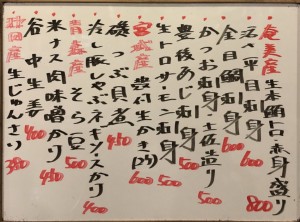 奄美産 生本鮪 赤身盛り 800
活〆平目刺身 600
金目鯛刺身 600
かつお刺身 土佐造り 500
豊後あじ刺身 500
生トロサーモン刺身 500
宮城産 殻付生かき 600
磯つぶ貝煮 450
冷し豚しゃぶネギソースがけ 400
青森産 そら豆 500
米ナス肉味噌がけ 400
谷中生姜 450
秋田産 生じゅんさい 380